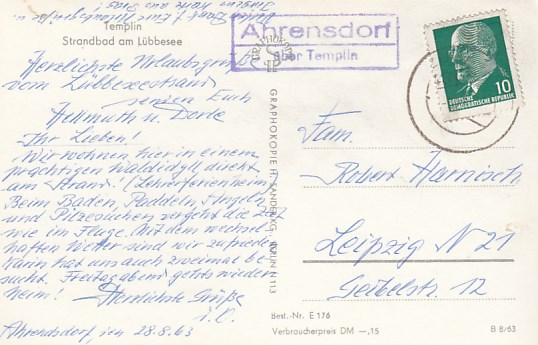 Templin
Strandbad am Lübbesee
Herzlichste Urlaubsgrüße
vom Lübbeseestrand
senden Euch
Hellmuth u. Dorle
Ihr Lieben!
Wir wohnen hier in einem
prächtigen Waldidyll direkt
am Strand. (Lehrerferienheim)
Beim Baden, Paddeln, Angeln
und Pilzesuchen vergeht die Zeit
wie im Fluge. Mit dem wechsel-
haften Wetter sind wir zufrieden
Karin hat uns auch zweimal be-
sucht. Freitagabend gehts wieder
heim! Herzlichste Grüße
Ahrendsdorf, den 28.8.63
GRAPHOKOPIE H. SANDER KG. BERLIN N 113
GRAPHOKOPIE
Ahrensdorf
über Templin
10
DEUTSCHE
DEMOKRATISCHE REPUBLIK
Fam.
Robert Harnisch
Leipzig N 21
Geibelstr. 12
Best.-Nr. E 176
Verbraucherpreis DM —,15
B 8/63